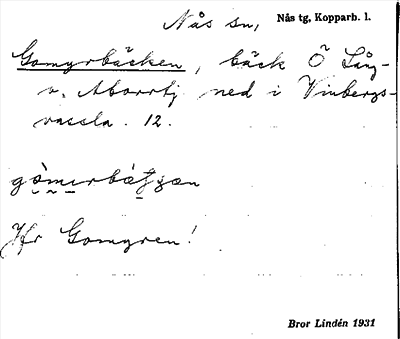 Nås sn, Nås tg, Kopparb. l.
Gomyrbäcken, bäck Ö Lång-
o. Aborrtj ned i Vinbergs-
vassla. 12.
Jfr Gomyren!
Bror Lindén 1931